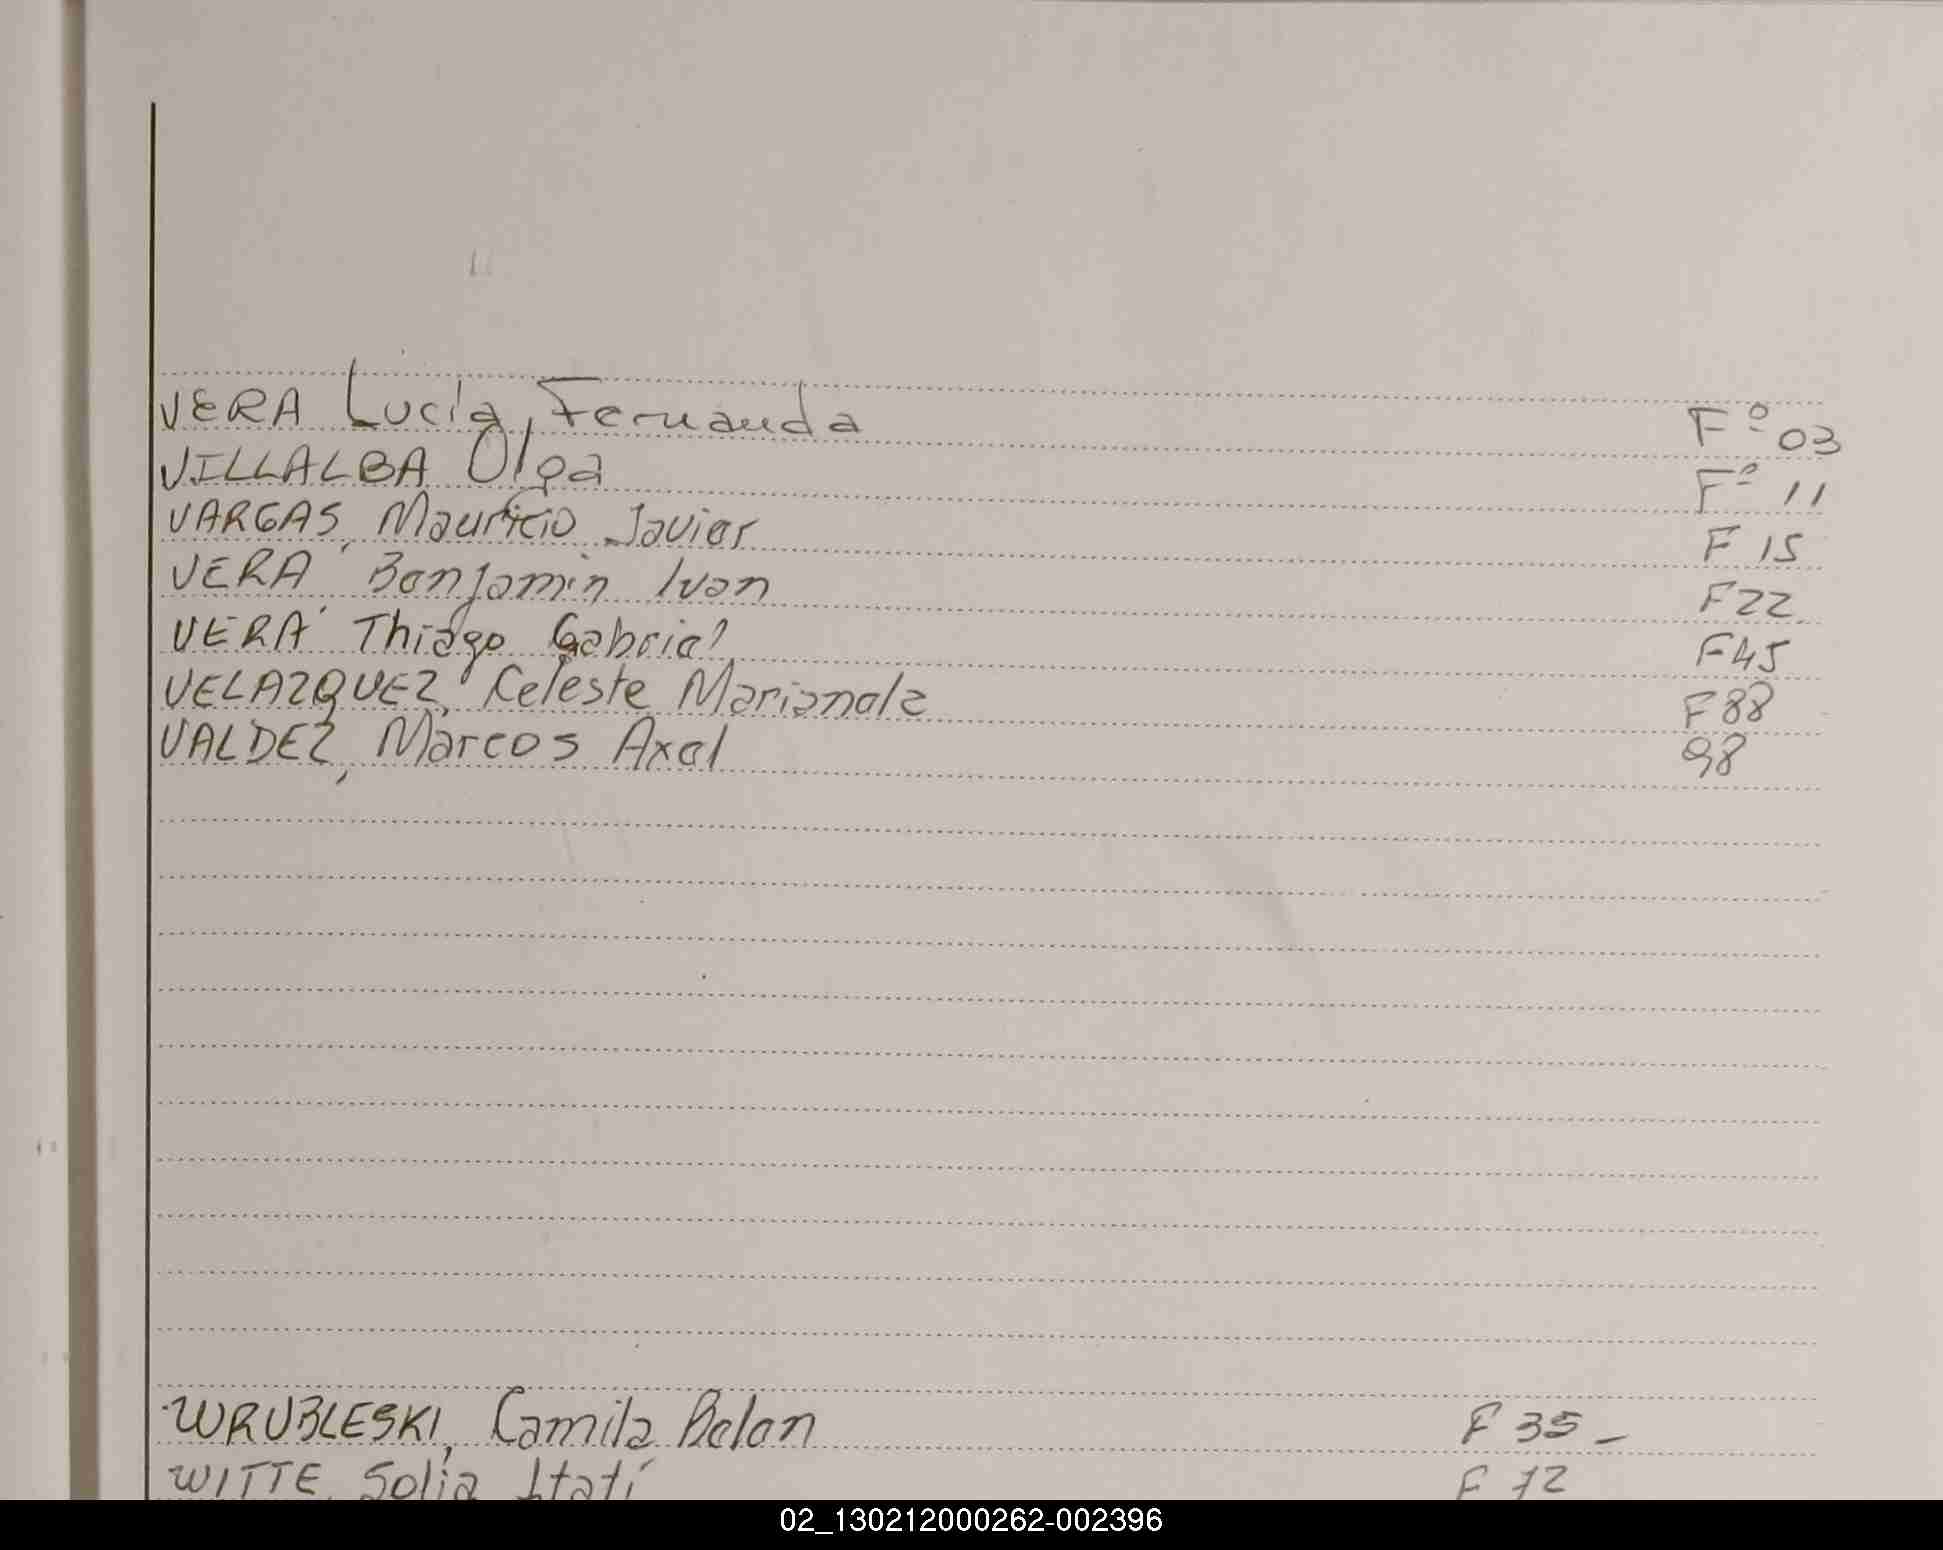 VERA Lucía, Fernanda F° 03
VILLALBA Olga F° 11
VARGAS, Mauricio Javier F 15
VERA, Benjamin Ivan F22
VERA, Thiago Gabriel F45
VELAZQUEZ, Celeste Marianela F88
VALDEZ, Marcos Axel 98
WRUBLESKI, Camila Belen F 35 -
WITTE, Itatí F 72
02_130212000262-002396